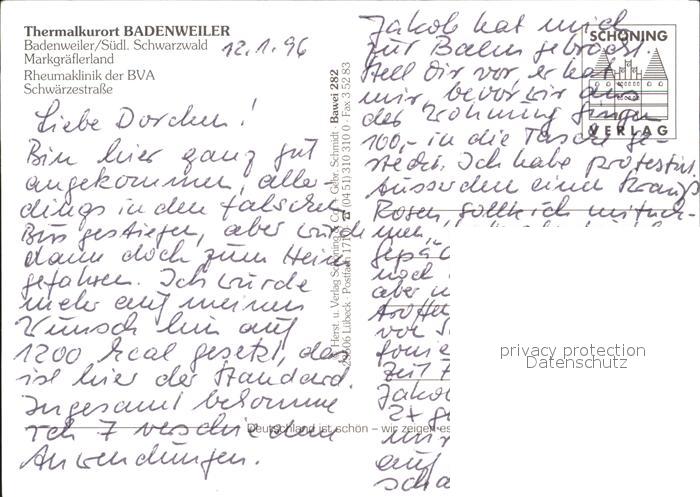 Thermalkurort BADENWEILER
Badenweiler/Südl. Schwarzwald
Markgräflerland
Rheumaklinik der BVA
Schwärzestraße
12.1.96
Liebe Dorchen!
Bin hier ganz gut
angekommen, aller-
dings in den falschen
Bus gestiegen, aber wurde
dann doch zum Heim
gefahren. Ich wurde
mehr auf meinen
Wunsch hin auf
1200 kcal gesetzt, das
ist hier der Standard.
Insgesamt bekomme
ich 7 verschiedene
Anwendungen.
Herst. u. Verlag Schöning & Co + Gebr. Schmidt · Bawei 282
23506 Lübeck · Postfach 1710 · ☎ (04 51) 310 310 0 · Fax 3 52 83
Deutschland ist schön – wir zeigen es
Jakob hat mich
zur Bahn gebracht.
Stell Dir vor, er hat
mir, bevor wir aus
der Wohnung gingen
100,- in die Tasche ge-
steckt. Ich habe protestiert.
Ausserdem einen Strauß
Rosen, sollte ich mitneh-
men,
Gepä
noch
aber
vor
Zeit
Jakob
2x ge
mir
auf
scha
SCHÖNING
VERLAG
privacy protection
Datenschutz